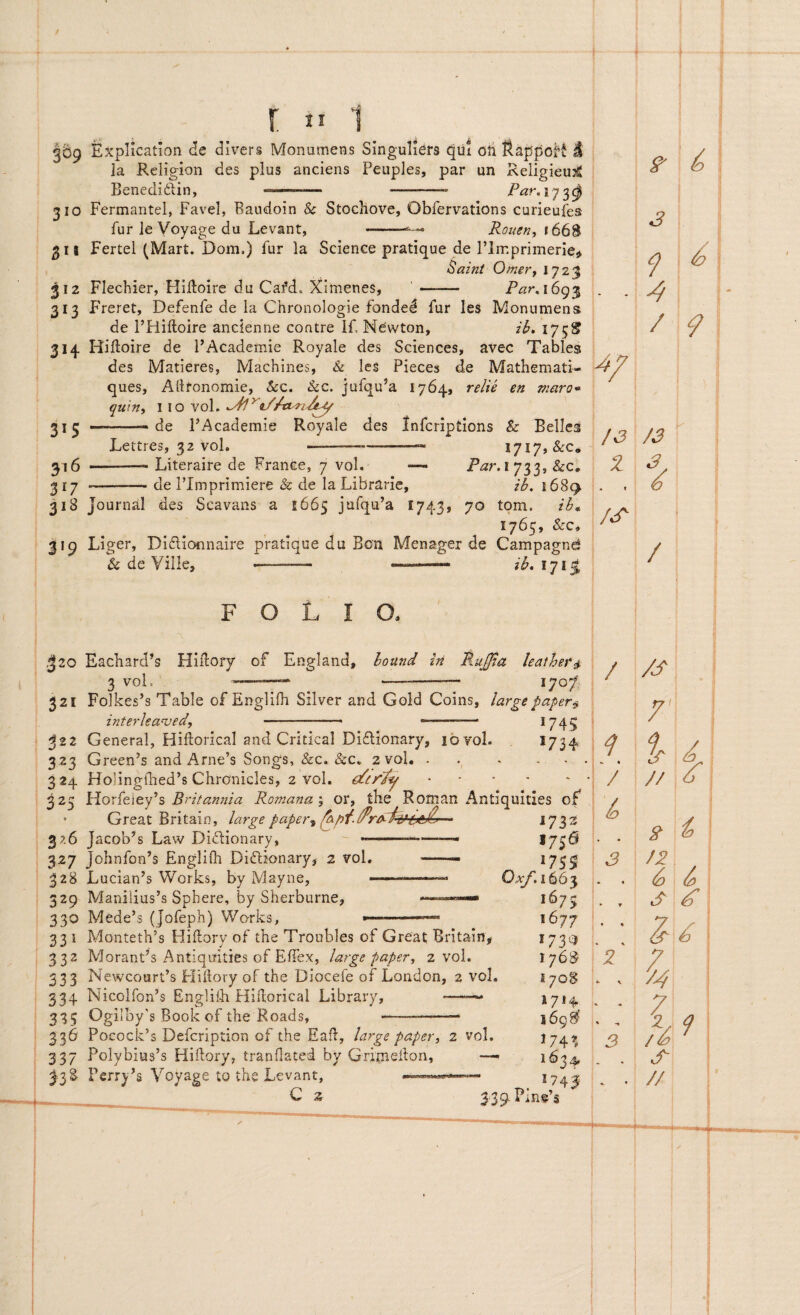 [ 11 ]
309 Explication de divers Monumens Singuliers qui on Rapport à
la Religion des plus anciens Peuples, par un Religieux
Benedictin, ——— ——— Par. 1739 8 6
310 Fermantel, Favel, Baudoin & Stochove, Obſervations curieuſes
ſur le Voyage du Levant, ——— Rouen, 1668 3
311 Fertel (Mart. Dom.) ſur la Science pratique de l'Imprimerie,
Saint Omer, 1723 9 6
312 Flechier, Hiſtoire du Card. Ximenes, ——— Par. 1693 . . 4
313 Freret, Defenſe de la Chronologie fondeé ſur les Monumens
de l'Hiſtoire ancienne contre If. Newton, ib. 1758 1 9
314 Hiſtoire de l'Academie Royale des Sciences, avec Tables
des Matieres, Machines, & les Pieces de Mathemati- 47
ques, Aſtronomie, &c. &c. juſqu'a 1764, relié en maro-
quin, 110 vol. Mr Stanley
315 ——— de l'Academie Royale des Inſcriptions & Belles
Lettres, 32 vol. ——— 1717, &c. 13 13
316 ——— Literaire de France, 7 vol. — Par. 1733, &c. 2 3
317 ——— de l'Imprimiere & de la Librarie, ib. 1689 . . 6
318 Journal des Scavans a 1665 juſqu'a 1743, 70 tom. ib.
1765, &c. 15
319 Liger, Dictionnaire pratique du Bon Menager de Campagne
& de Ville, ——— ——— ib. 1715 1
FOLIO.
320 Eachard's Hiſtory of England, bound in Ruſſia leather,
3 vol. ——— ——— 1707 1 15
321 Folkes's Table of Engliſh Silver and Gold Coins, large paper,
interleaved, ——— ——— 1745 7
322 General, Hiſtorical and Critical Dictionary, 10 vol. 1734 9 9
323 Green's and Arne's Songs, &c. &c. 2 vol. . . . . . . . . 5 6
324 Holingſhed's Chronicles, 2 vol. dirty . . . . . . 1 11 6
325 Horſeley's Britannia Romana; or, the Roman Antiquities of
Great Britain, large paper, 1732 6
326 Jacob's Law Dictionary, ——— 1756 . . 8 6
327 Johnſon's Engliſh Dictionary, 2 vol. ——— 1755 3 12
328 Lucian's Works, by Mayne, ——— Oxf. 1663 . . 6 6
329 Manilius's Sphere, by Sherburne, ——— 1675 . . 5 6
330 Mede's (Joſeph) Works, ——— 1677 . . 7
331 Monteth's Hiſtory of the Troubles of Great Britain, 1739 . . 8 6
332 Morant's Antiquities of Eſſex, large paper, 2 vol. 1768 2 7
333 Newcourt's Hiſtory of the Dioceſe of London, 2 vol. 1708 . . 14
334 Nicolſon's Engliſh Hiſtorical Library, ——— 1714 . . 7
335 Ogilby's Book of the Roads, ——— 1698 . . 2 9
336 Pocock's Deſcription of the Eaſt, large paper, 2 vol. 1743 3 16
337 Polybius's Hiſtory, tranſlated by Grimeſton, — 1634 . . 5
338 Perry's Voyage to the Levant, ——— 1743 . . 11
C 2 339 Pine's